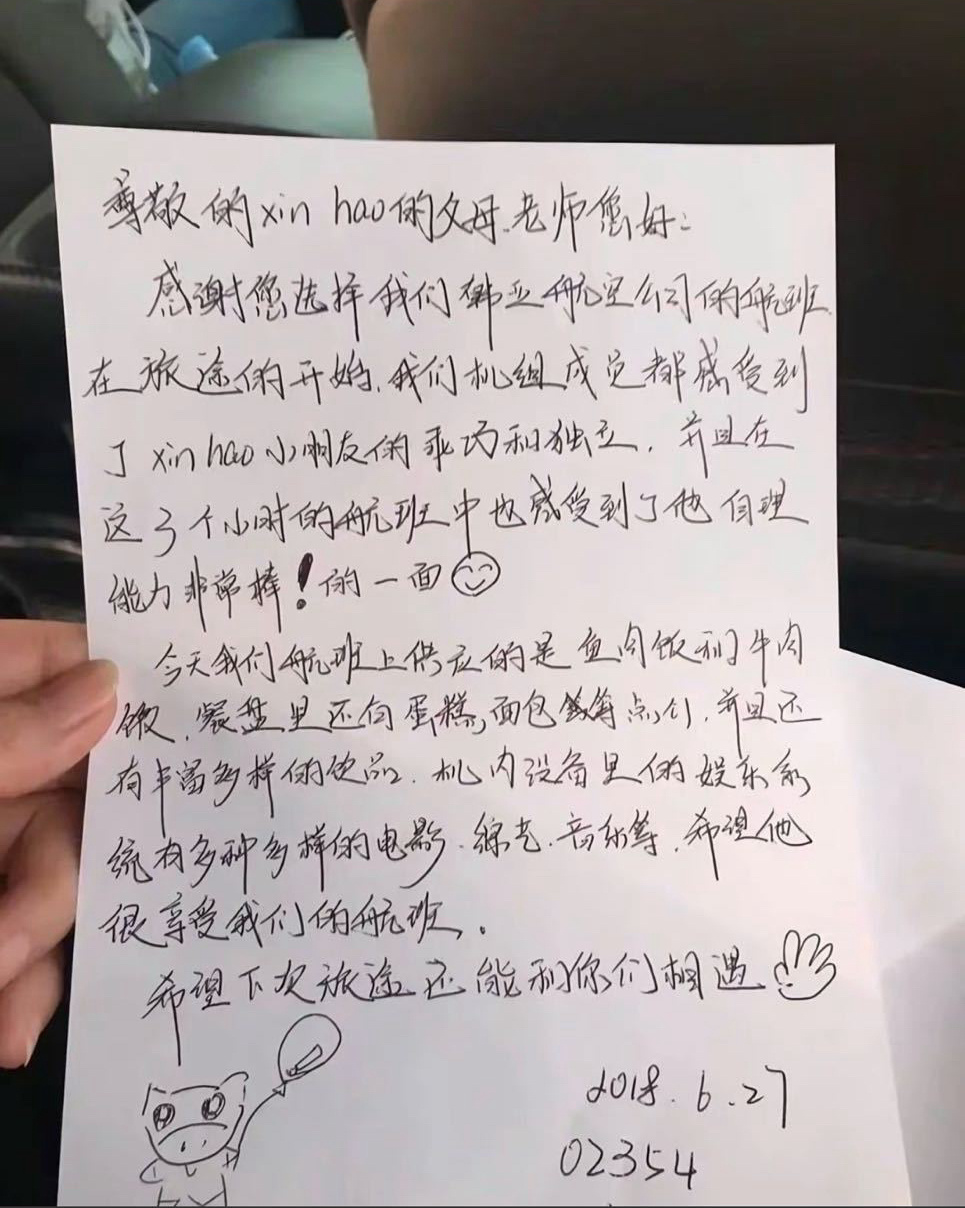 尊敬的xin hao的父母.老师您好:
感谢您选择我们韩亚航空公司的航班.
在旅途的开始.我们机组成员都感受到
了xin hao小朋友的乖巧和独立.并且在
这3个小时的航班中也感受到了他自理
能力非常棒!的一面
今天我们航班上供应的是鱼肉饭和牛肉
饭.餐盘里还有蛋糕,面包等点心.并且还
有丰富多样的饮品.机内设备里的娱乐系
统有多种多样的电影.综艺.音乐等.希望他
很享受我们的航班.
希望下次旅途还能和你们相遇
2018.6.27
02354